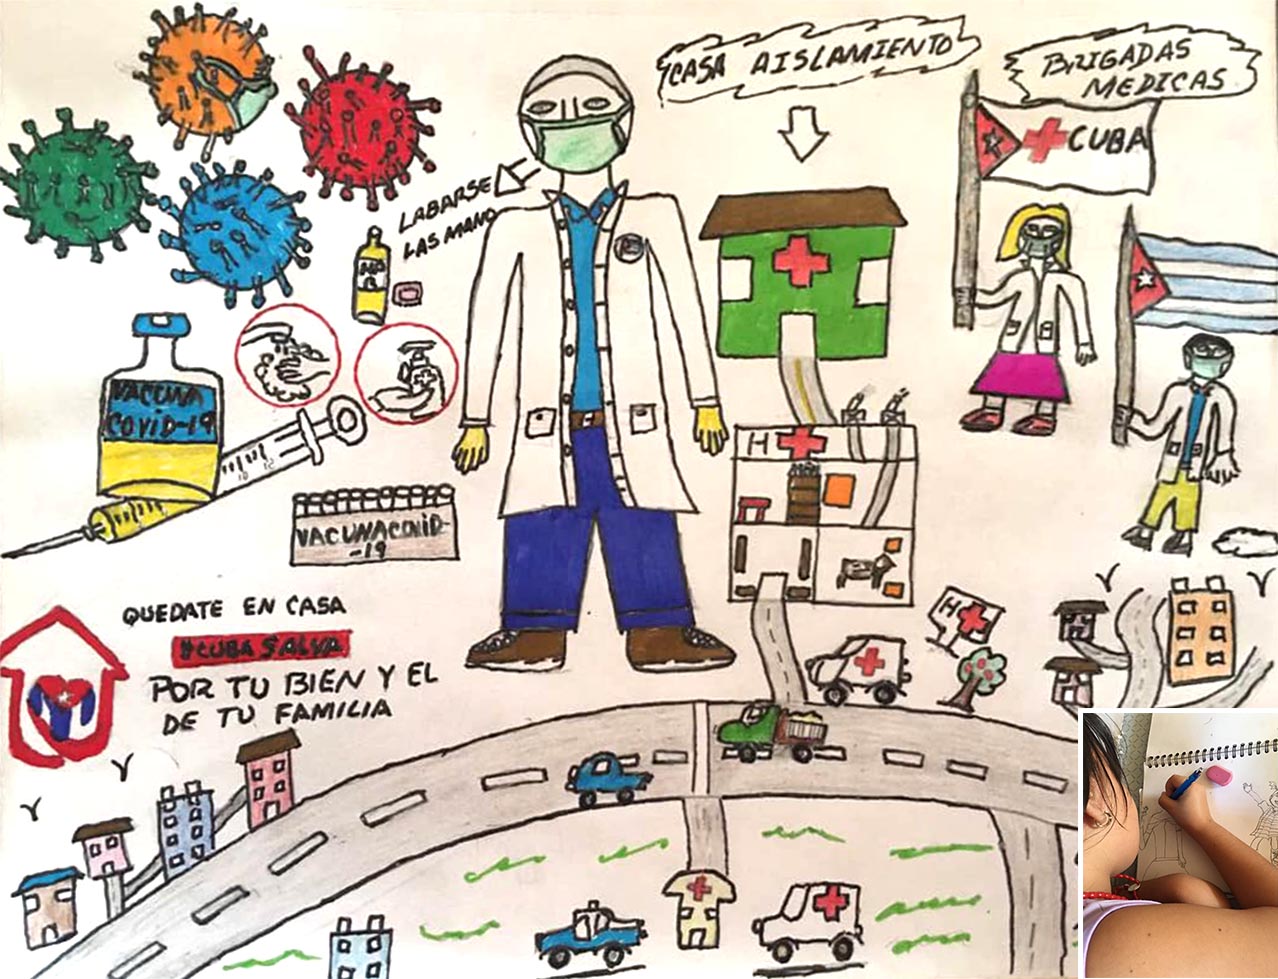 CASA AISLAMIENTO
BRIGADAS
MEDICAS
CUBA
LABARSE
LAS MANO
VACCUNA
COVID-19
10 12
VACUNACOVID-
-19
H
QUEDATE EN CASA
#CUBA SALVA
POR TU BIEN Y EL
DE TU FAMILIA
H